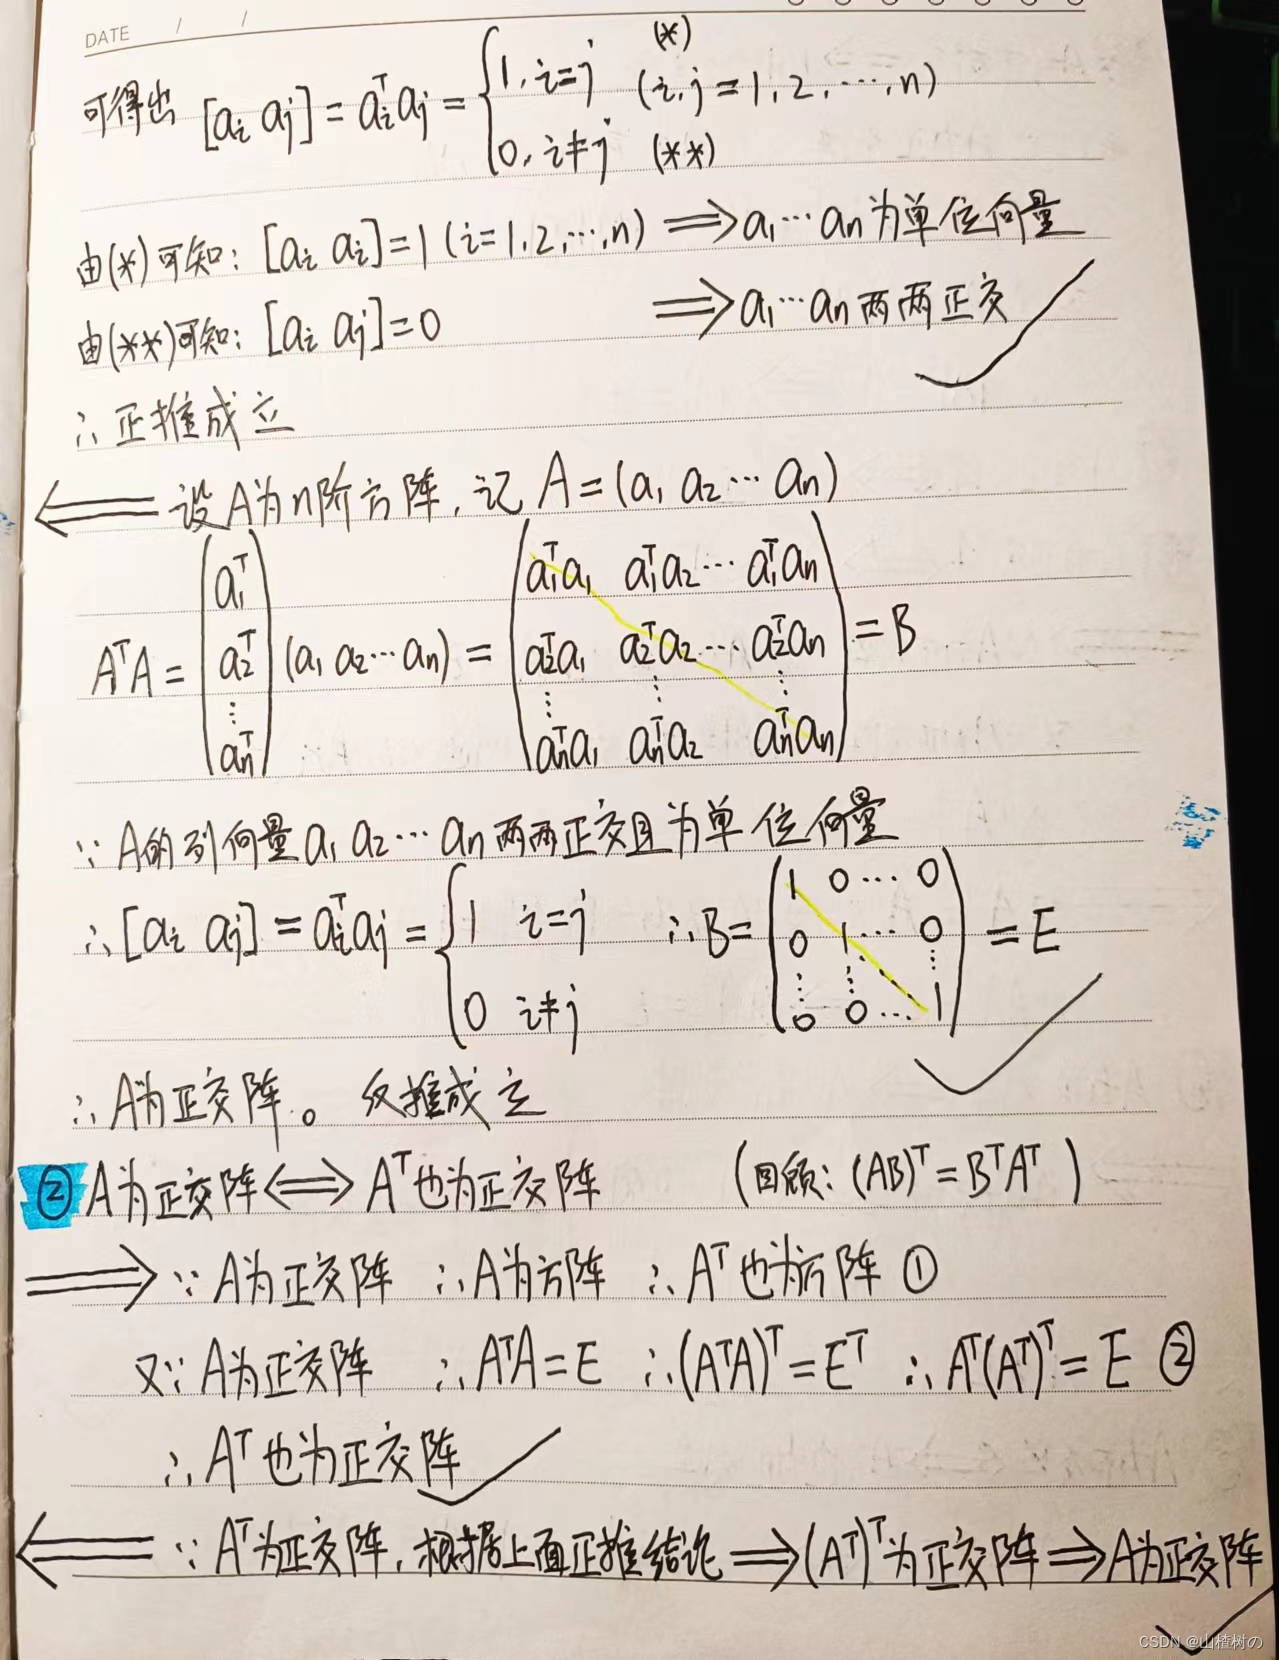 DATE / /
可得出 [aᵢ aⱼ] = aᵢᵀaⱼ = { 1, i=j (*)
0, i≠j (**) (i, j = 1, 2, ⋯, n)
由(*)可知: [aᵢ aᵢ]=1 (i=1,2,⋯,n) ⟹ a₁⋯aₙ为单位向量
由(**)可知: [aᵢ aⱼ]=0 ⟹ a₁⋯aₙ两两正交 ✓
∴正推成立
⟸ 设A为n阶方阵, 记 A=(a₁ a₂⋯aₙ)
AᵀA = (a₁ᵀ a₂ᵀ ⋮ aₙᵀ) (a₁ a₂⋯aₙ) = (a₁ᵀa₁ a₁ᵀa₂⋯a₁ᵀaₙ
a₂ᵀa₁ a₂ᵀa₂⋯a₂ᵀaₙ
⋮ ⋮ ⋮
aₙᵀa₁ aₙᵀa₂ aₙᵀaₙ) = B
∵ A的列向量a₁ a₂⋯aₙ两两正交且为单位向量
∴ [aᵢ aⱼ] = aᵢᵀaⱼ = { 1 i=j
0 i≠j
∴B= (1 0⋯0
0 1⋯0
⋮ ⋮ ⋱ ⋮
0 0⋯1) = E ✓
∴ A为正交阵。 反推成立
② A为正交阵⟺Aᵀ也为正交阵 (回顾: (AB)ᵀ=BᵀAᵀ)
⟹ ∵ A为正交阵 ∴A为方阵 ∴Aᵀ也为方阵 ①
又∵ A为正交阵 ∴AᵀA=E ∴(AᵀA)ᵀ=Eᵀ ∴Aᵀ(Aᵀ)ᵀ=E ②
∴ Aᵀ也为正交阵 ✓
⟸ ∵ Aᵀ为正交阵, 根据上面正推结论⟹(Aᵀ)ᵀ为正交阵⟹A为正交阵 ✓
CSDN @山楂树の